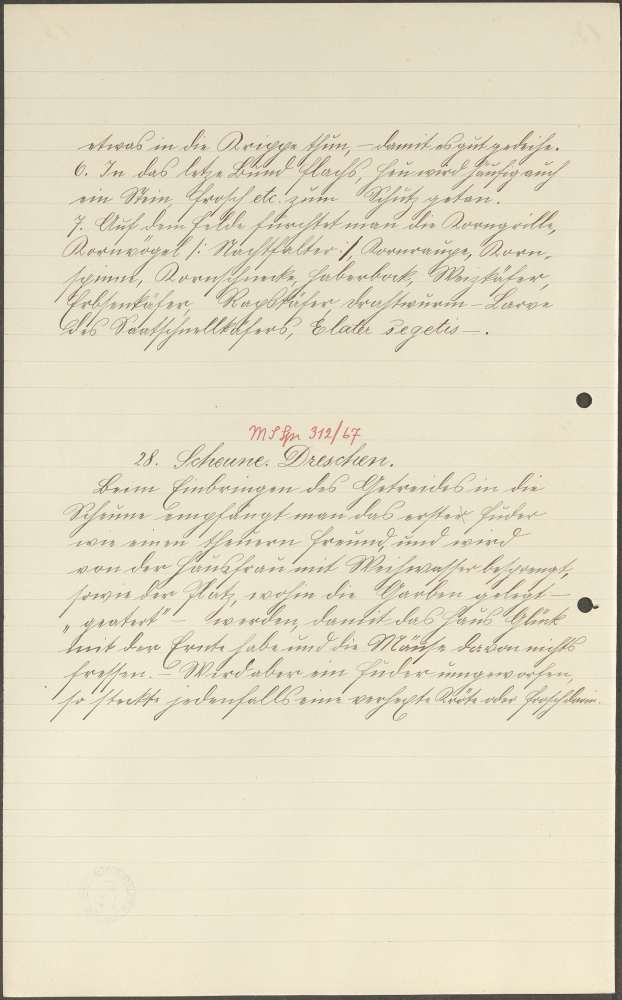 etwas in die Krippe thun, – damit es gut gedeihe.
6. In das letzte Bund Flachs, Heu wird häufig auch
ein Stein, Frosch etc. zum Schutz getan.
7. Auf dem Felde fürchtet man die Korngrille,
Kornvögel /: Nachtfalter :/, Kornraupe, Korn-
spinne, Kornschnecke, Haberbock, Weizkäfer,
Erbsenkäfer, Rapskäfer, Drahtwurm – Larve
des Saatschnellkäfers, Elater segetis –.
MSSpr 312/67
28. Scheune. Dreschen.
Beim Einbringen des Getreides in die
Scheune empfängt man das erste Fuder
wie einen theuern Freund, und wird
von der Hausfrau mit Weihwasser besprengt,
sowie der Platz, wohin die Garben gelegt –
"geatert" – werden, damit das Haus Glück
mit der Ernte habe und die Mäuse davon nichts
fressen. – Wird aber ein Fuder umgeworfen,
so steckte jedenfalls eine verhexte Kröte oder Frosch darin.